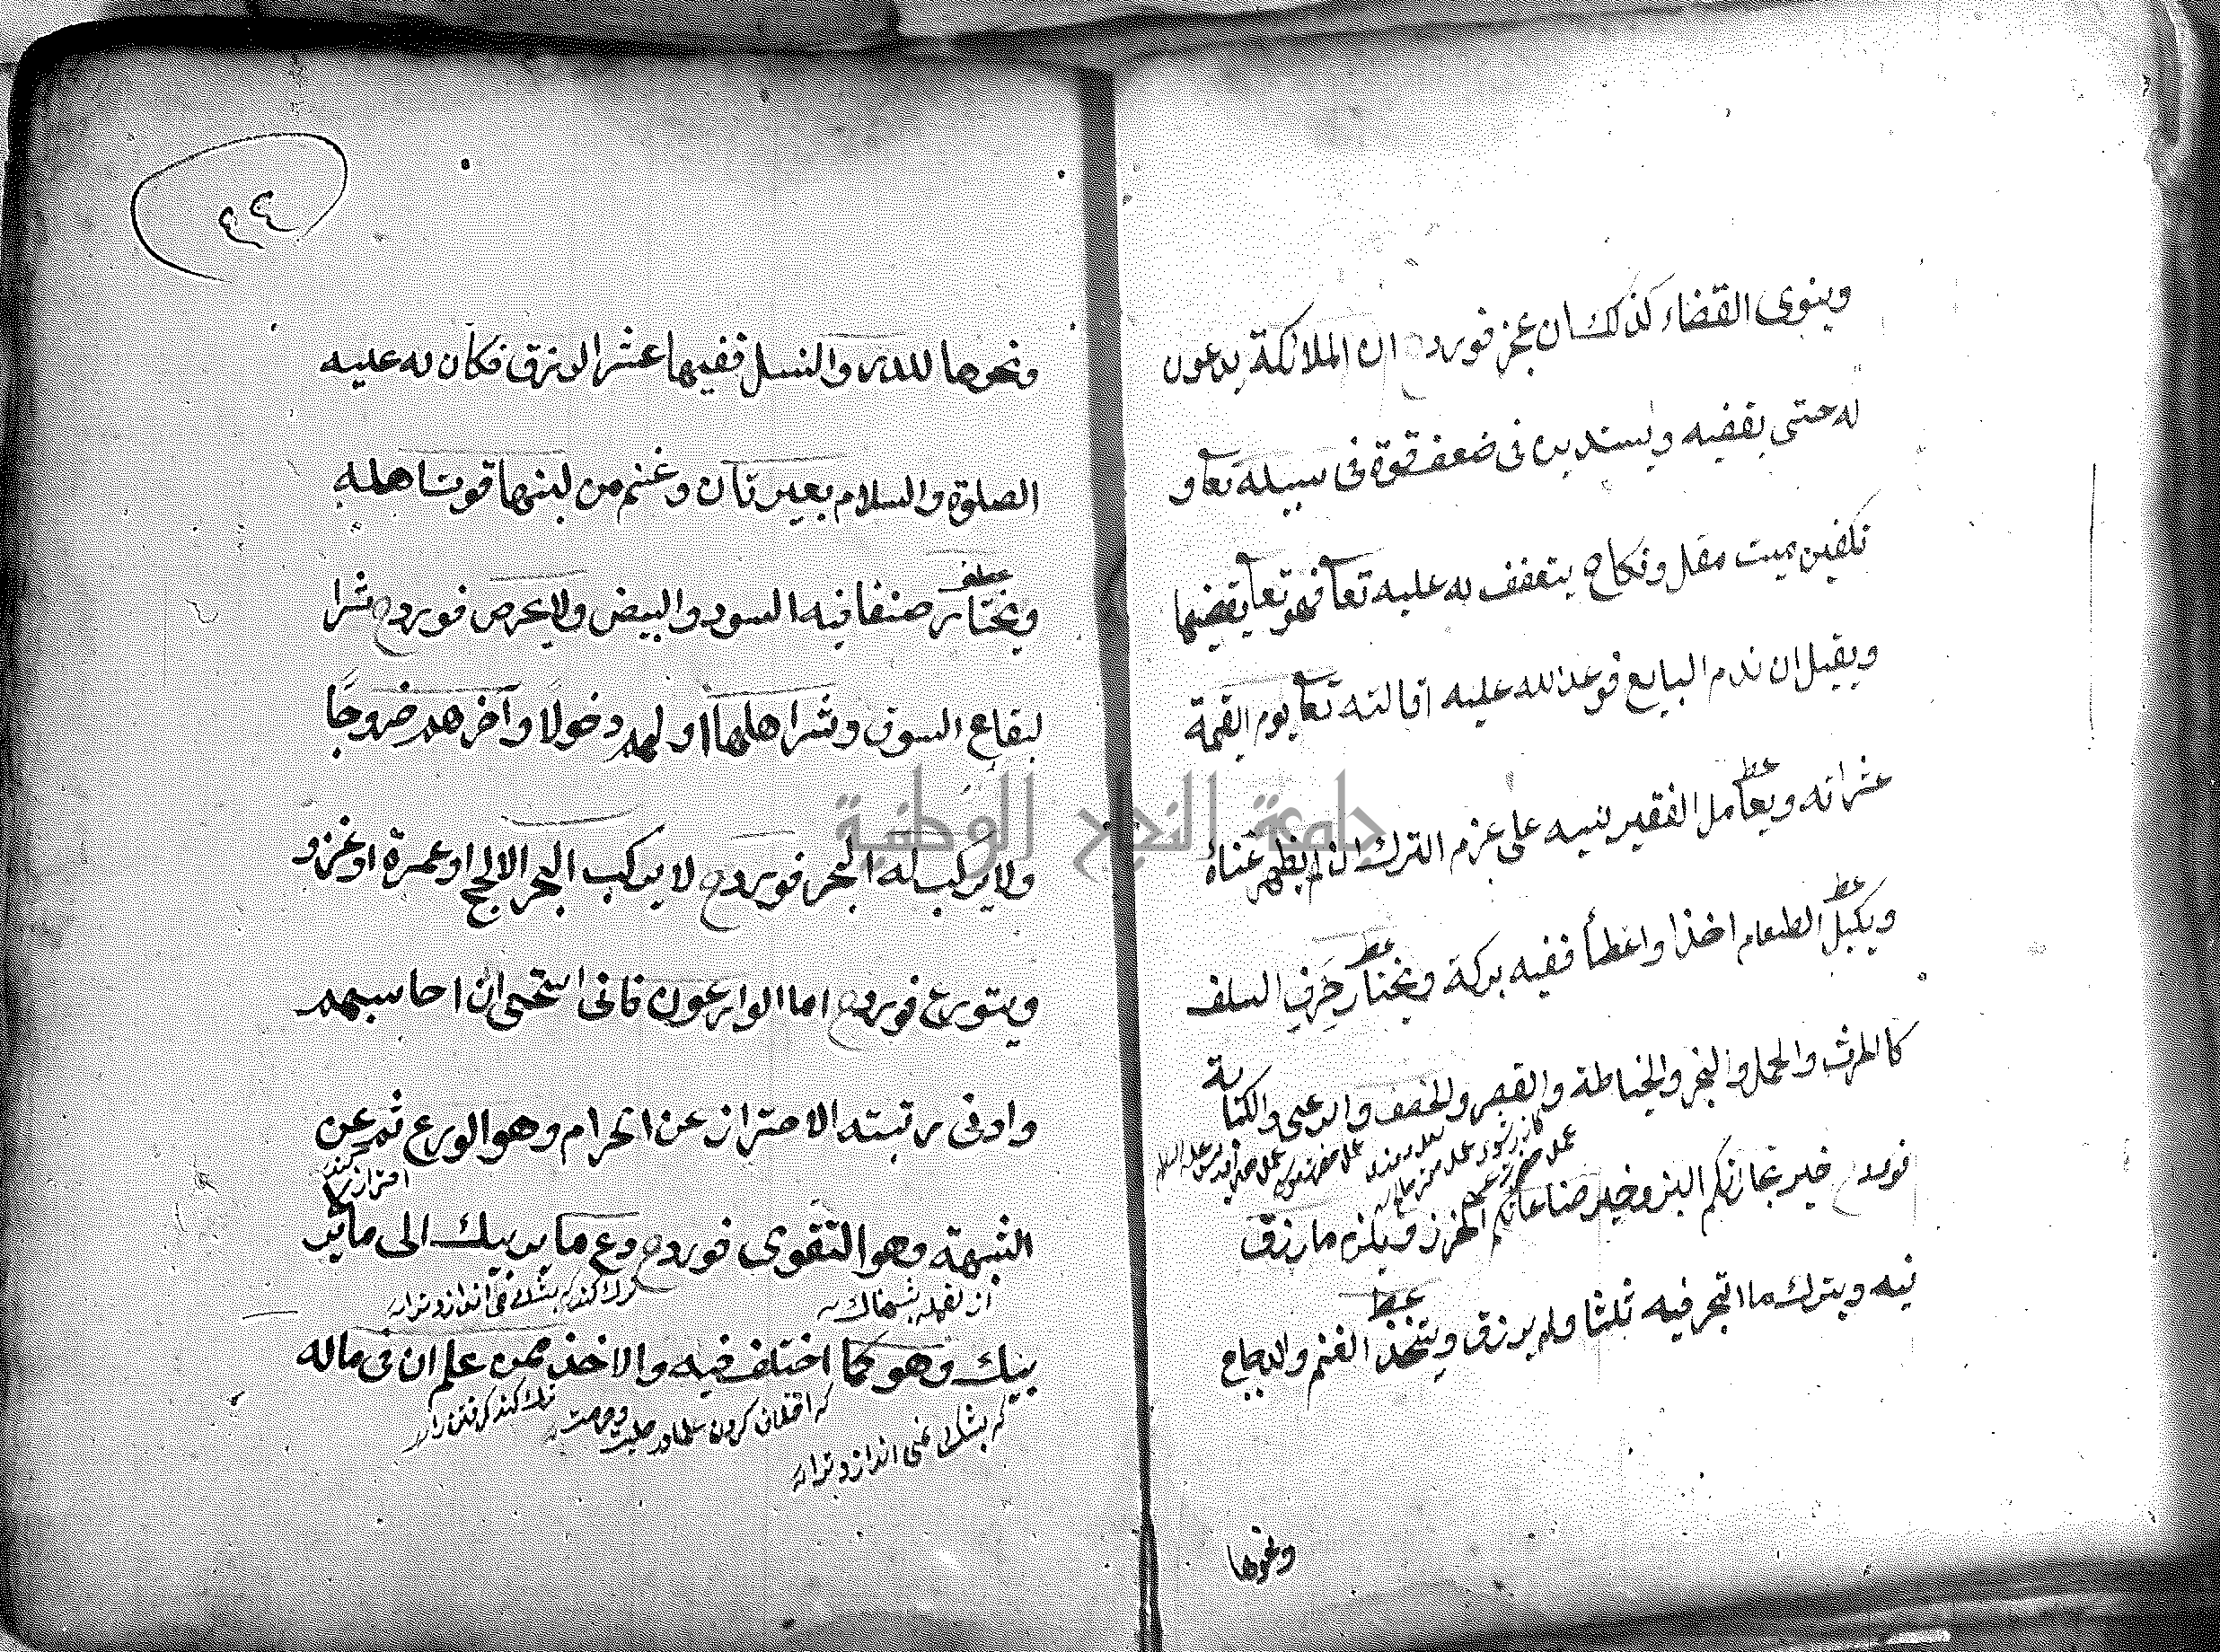 وينوى القضاء كذلك ان عجز فورد ان الملائكة يدعون
له حتى يقضيه ويستدين فى ضعف قوة فى سبيله تعا و
تكفين ميت مقل ونكاح يتعفف به عليه تعا فهو تعا يقضيها
ويقيل ان ندم البايع فوعد لله عليه اقالته تعا يوم القيمة
عثراته ويعامل الفقير نسيه على عزم الترك ان لم يظهر غناه
ويكيل الطعام اخذا واعطأ ففيه بركة ويختار حرف السلف
كالحرث والحمل والنجر والخياطة والقصر والخصف والرعى والكتابة
فورد خير تجارتكم البز وخير صناعاتكم الخرز ويلزم ما رزق
فيه ويترك ما اتجر فيه ثلثا ولم يرزق ويتخذ الغنم والدجاج
ونحوها
٤٤
ونحوها للدر والنسل ففيها عشر الرزق فكان له عليه
الصلوة والسلام بعيرتان وغنم من لبنها قوت اهله
ويختار صنفا فيه السود والبيض ولا يحرص فورد شر
البقاع السوق وشر اهلها اولهم دخولا وآخرهم خروجا
ولا يركب له البحر فورد لا يركب البحر الا لحج او عمرة او غزو
ويتورع فورد اما الوارعون فانى استحى ان احاسبهم
وادنى رتبته الاحتراز عن الحرام وهو الورع ثم عن
الشبهة وهو التقوى فورد دع ما يريبك الى ما ير
ترك كند
يبك وهو كما اختلف فيه والاخذ ممن علم ان فى ماله
جامعة النجاح الوطنية